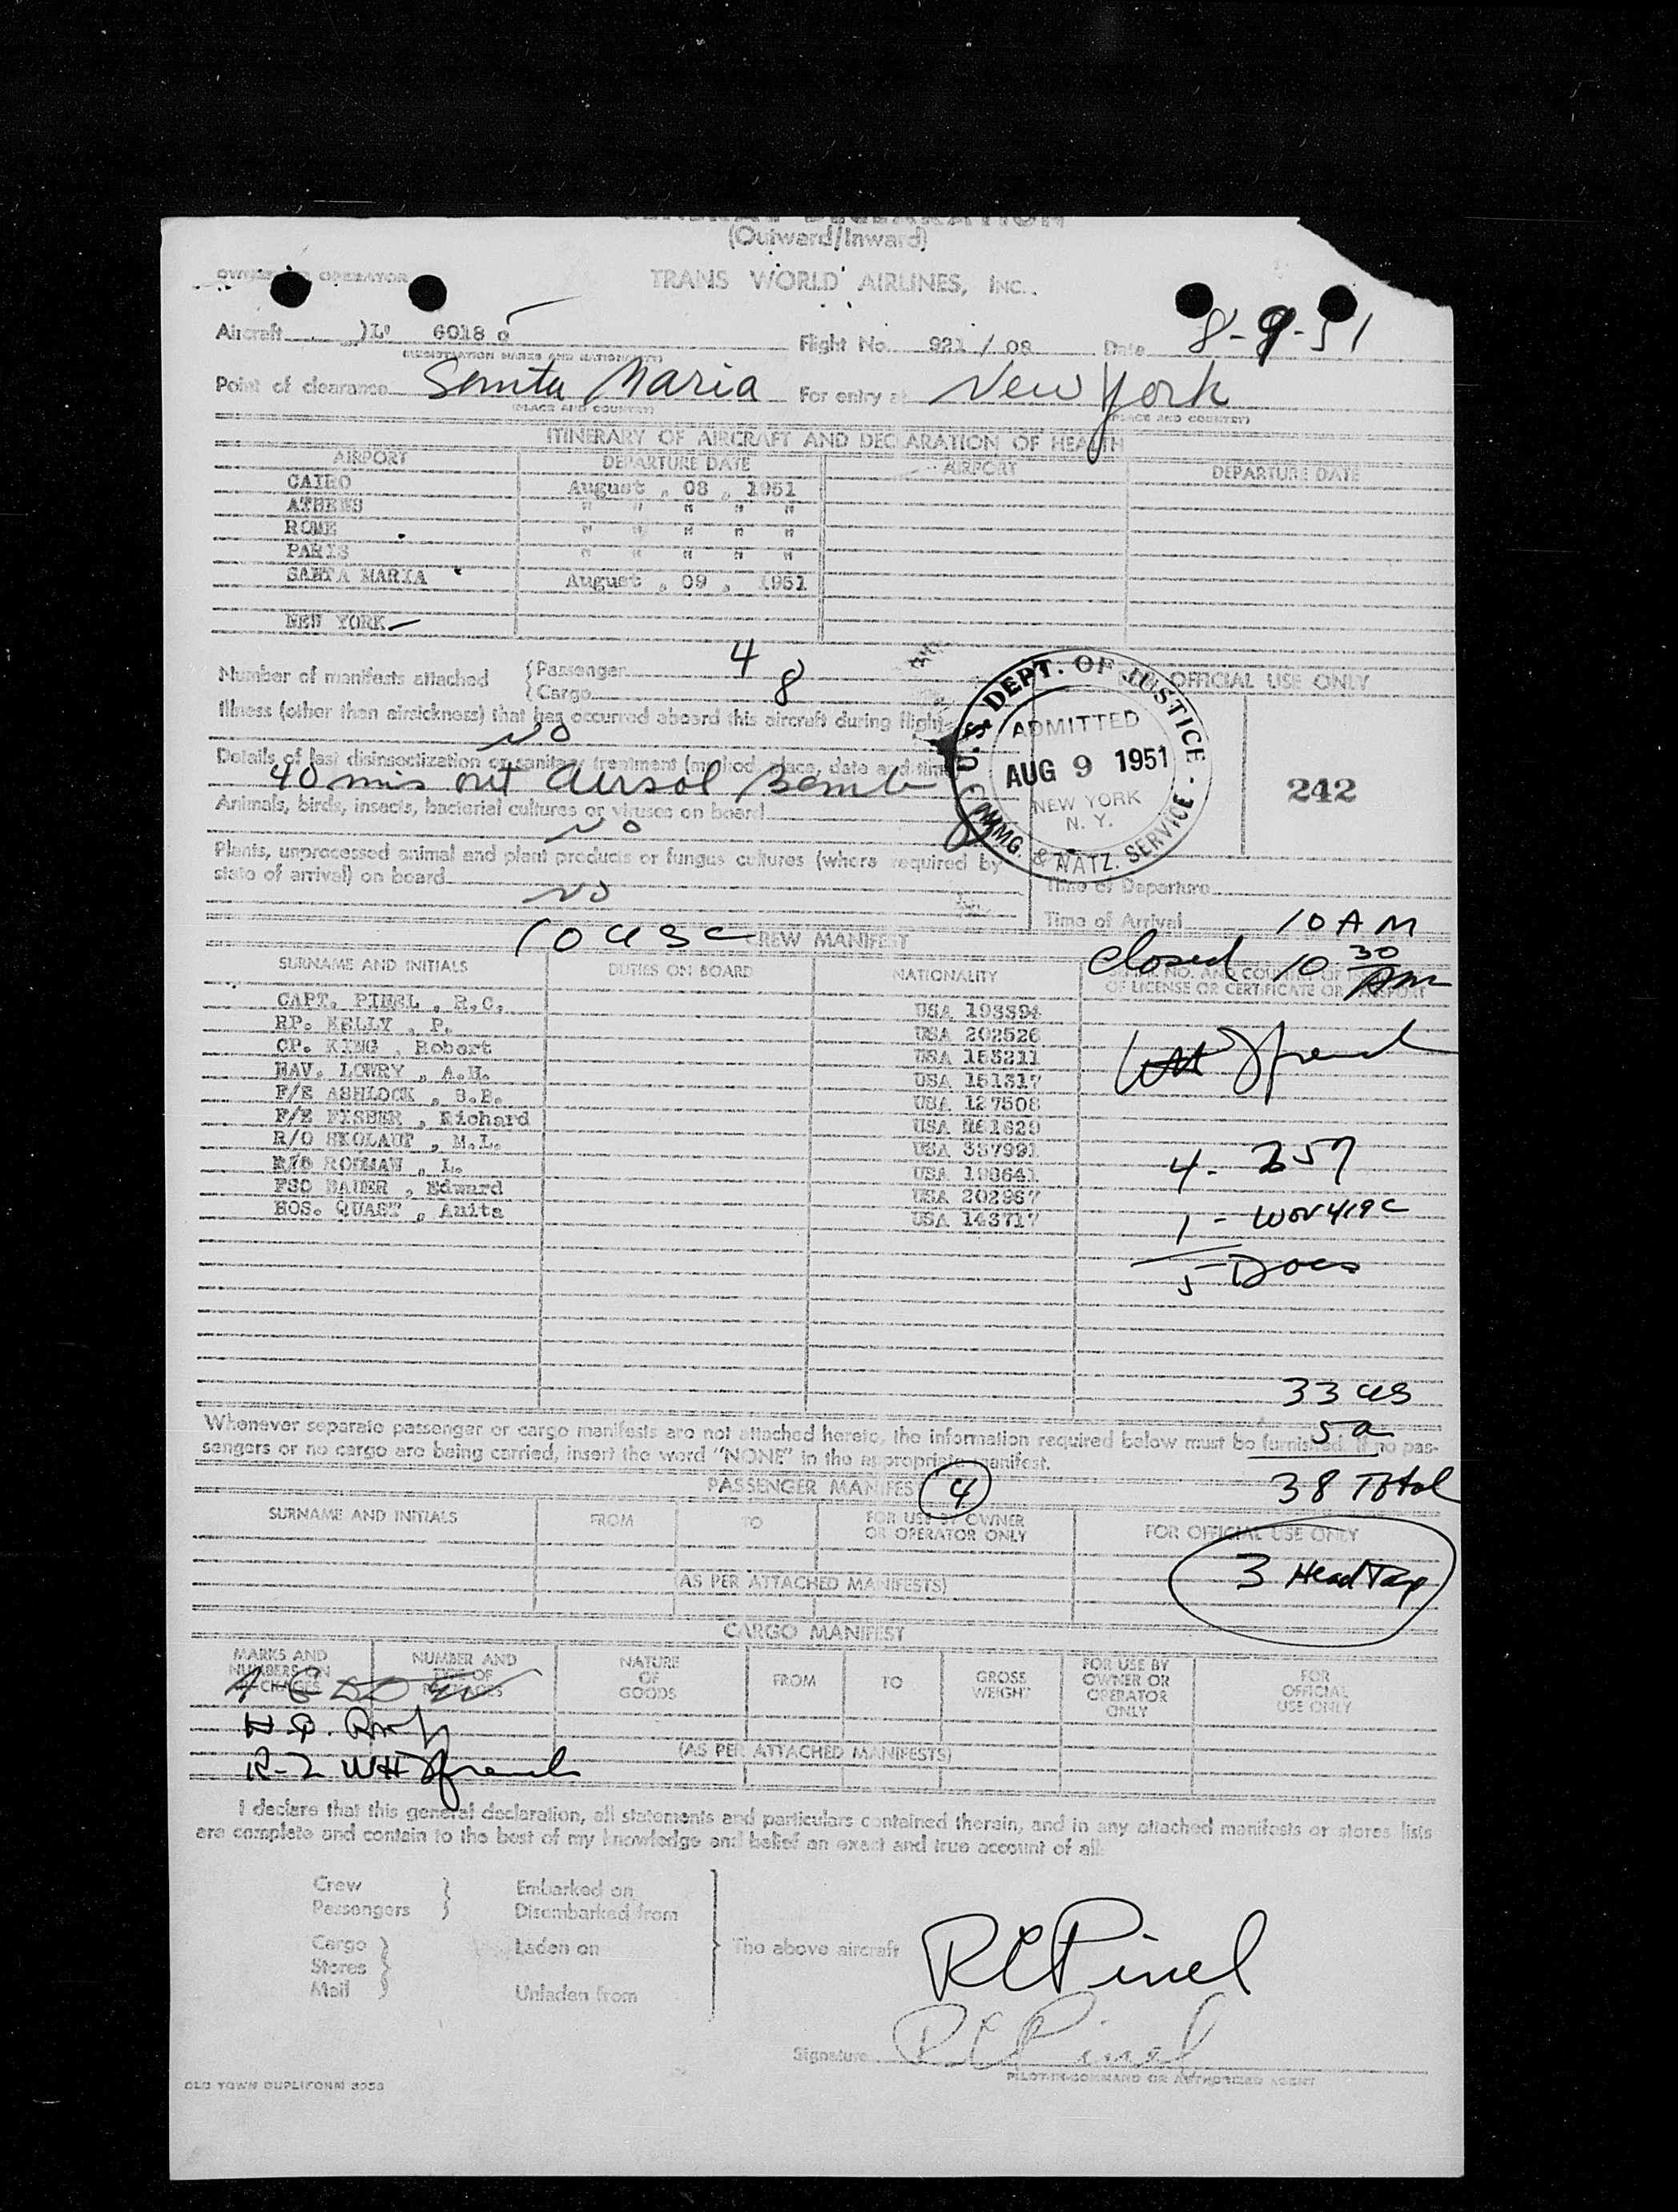 GENERAL DECLARATION
(Outward/Inward)
OWNER OR OPERATOR
TRANS WORLD AIRLINES, INC.
Aircraft 6018 Flight No. 921 / 08 Date 8-9-51
(REGISTRATION MARKS AND NATIONALITY)
Point of clearance Santa Maria For entry at New York
(PLACE AND COUNTRY) (PLACE AND COUNTRY)
ITINERARY OF AIRCRAFT AND DECLARATION OF HEALTH
AIRPORT DEPARTURE DATE AIRPORT DEPARTURE DATE
CAIRO August , 08 , 1951
ATHENS " " " " "
ROME " " " " "
PARIS " " " " "
SANTA MARIA August , 09 , 1951
NEW YORK
Number of manifests attached { Passenger 4
{ Cargo 8
FOR OFFICIAL USE ONLY
Illness (other than airsickness) that has occurred aboard this aircraft during flight
NO
Details of last disinsectization or sanitary treatment (method, place, date and time
40 mis out Aersol Bomb
Animals, birds, insects, bacterial cultures or viruses on board
NO
Plants, unprocessed animal and plant products or fungus cultures (where required by
state of arrival) on board
NO
U.S. DEPT. OF JUSTICE
ADMITTED
AUG 9 1951
NEW YORK
N. Y.
IMMG. & NATZ. SERVICE
242
Time of Departure
Time of Arrival 10 AM
closed 10 30 AM
10 USC
CREW MANIFEST
SURNAME AND INITIALS DUTIES ON BOARD NATIONALITY NO. AND COUNTRY OF
OF LICENSE OR CERTIFICATE OR PASSPORT
CAPT. PINEL , R.C. USA 193394
RP. KELLY , P. USA 202526
CP. KING , Robert USA 155211
NAV. LOWRY , A.H. USA 151317
F/E ASHLOCK , B.B. USA 127508
F/E FISHER , Richard USA
R/O SKOLAUT , M.L. USA 357991
R/O RODMAN , L. USA 198641
FSO BAUER , Edward USA 202967
HOS. QUAST , Anita USA 143717
WH French
4 - 257
1 -
5 Docs
33 US
5 a
38 Total
Whenever separate passenger or cargo manifests are not attached hereto, the information required below must be furnished. If no pas-
sengers or no cargo are being carried, insert the word "NONE" in the appropriate manifest.
PASSENGER MANIFEST 4
SURNAME AND INITIALS FROM TO FOR USE BY OWNER
OR OPERATOR ONLY FOR OFFICIAL USE ONLY
3 Head Tax
(AS PER ATTACHED MANIFESTS)
CARGO MANIFEST
MARKS AND
NUMBERS ON
PACKAGES NUMBER AND
TYPE OF
PACKAGES NATURE
OF
GOODS FROM TO GROSS
WEIGHT FOR USE BY
OWNER OR
OPERATOR
ONLY FOR
OFFICIAL
USE ONLY
(AS PER ATTACHED MANIFESTS)
R-2 WH French
I declare that this general declaration, all statements and particulars contained therein, and in any attached manifests or stores lists
are complete and contain to the best of my knowledge and belief an exact and true account of all:
Crew } Embarked on
Passengers } Disembarked from
Cargo } Laden on The above aircraft R C Pinel
Stores }
Mail } Unladen from
Signature R C Pinel
PILOT-IN-COMMAND OR AUTHORIZED AGENT
OLD TOWN DUPLIFORM 3053